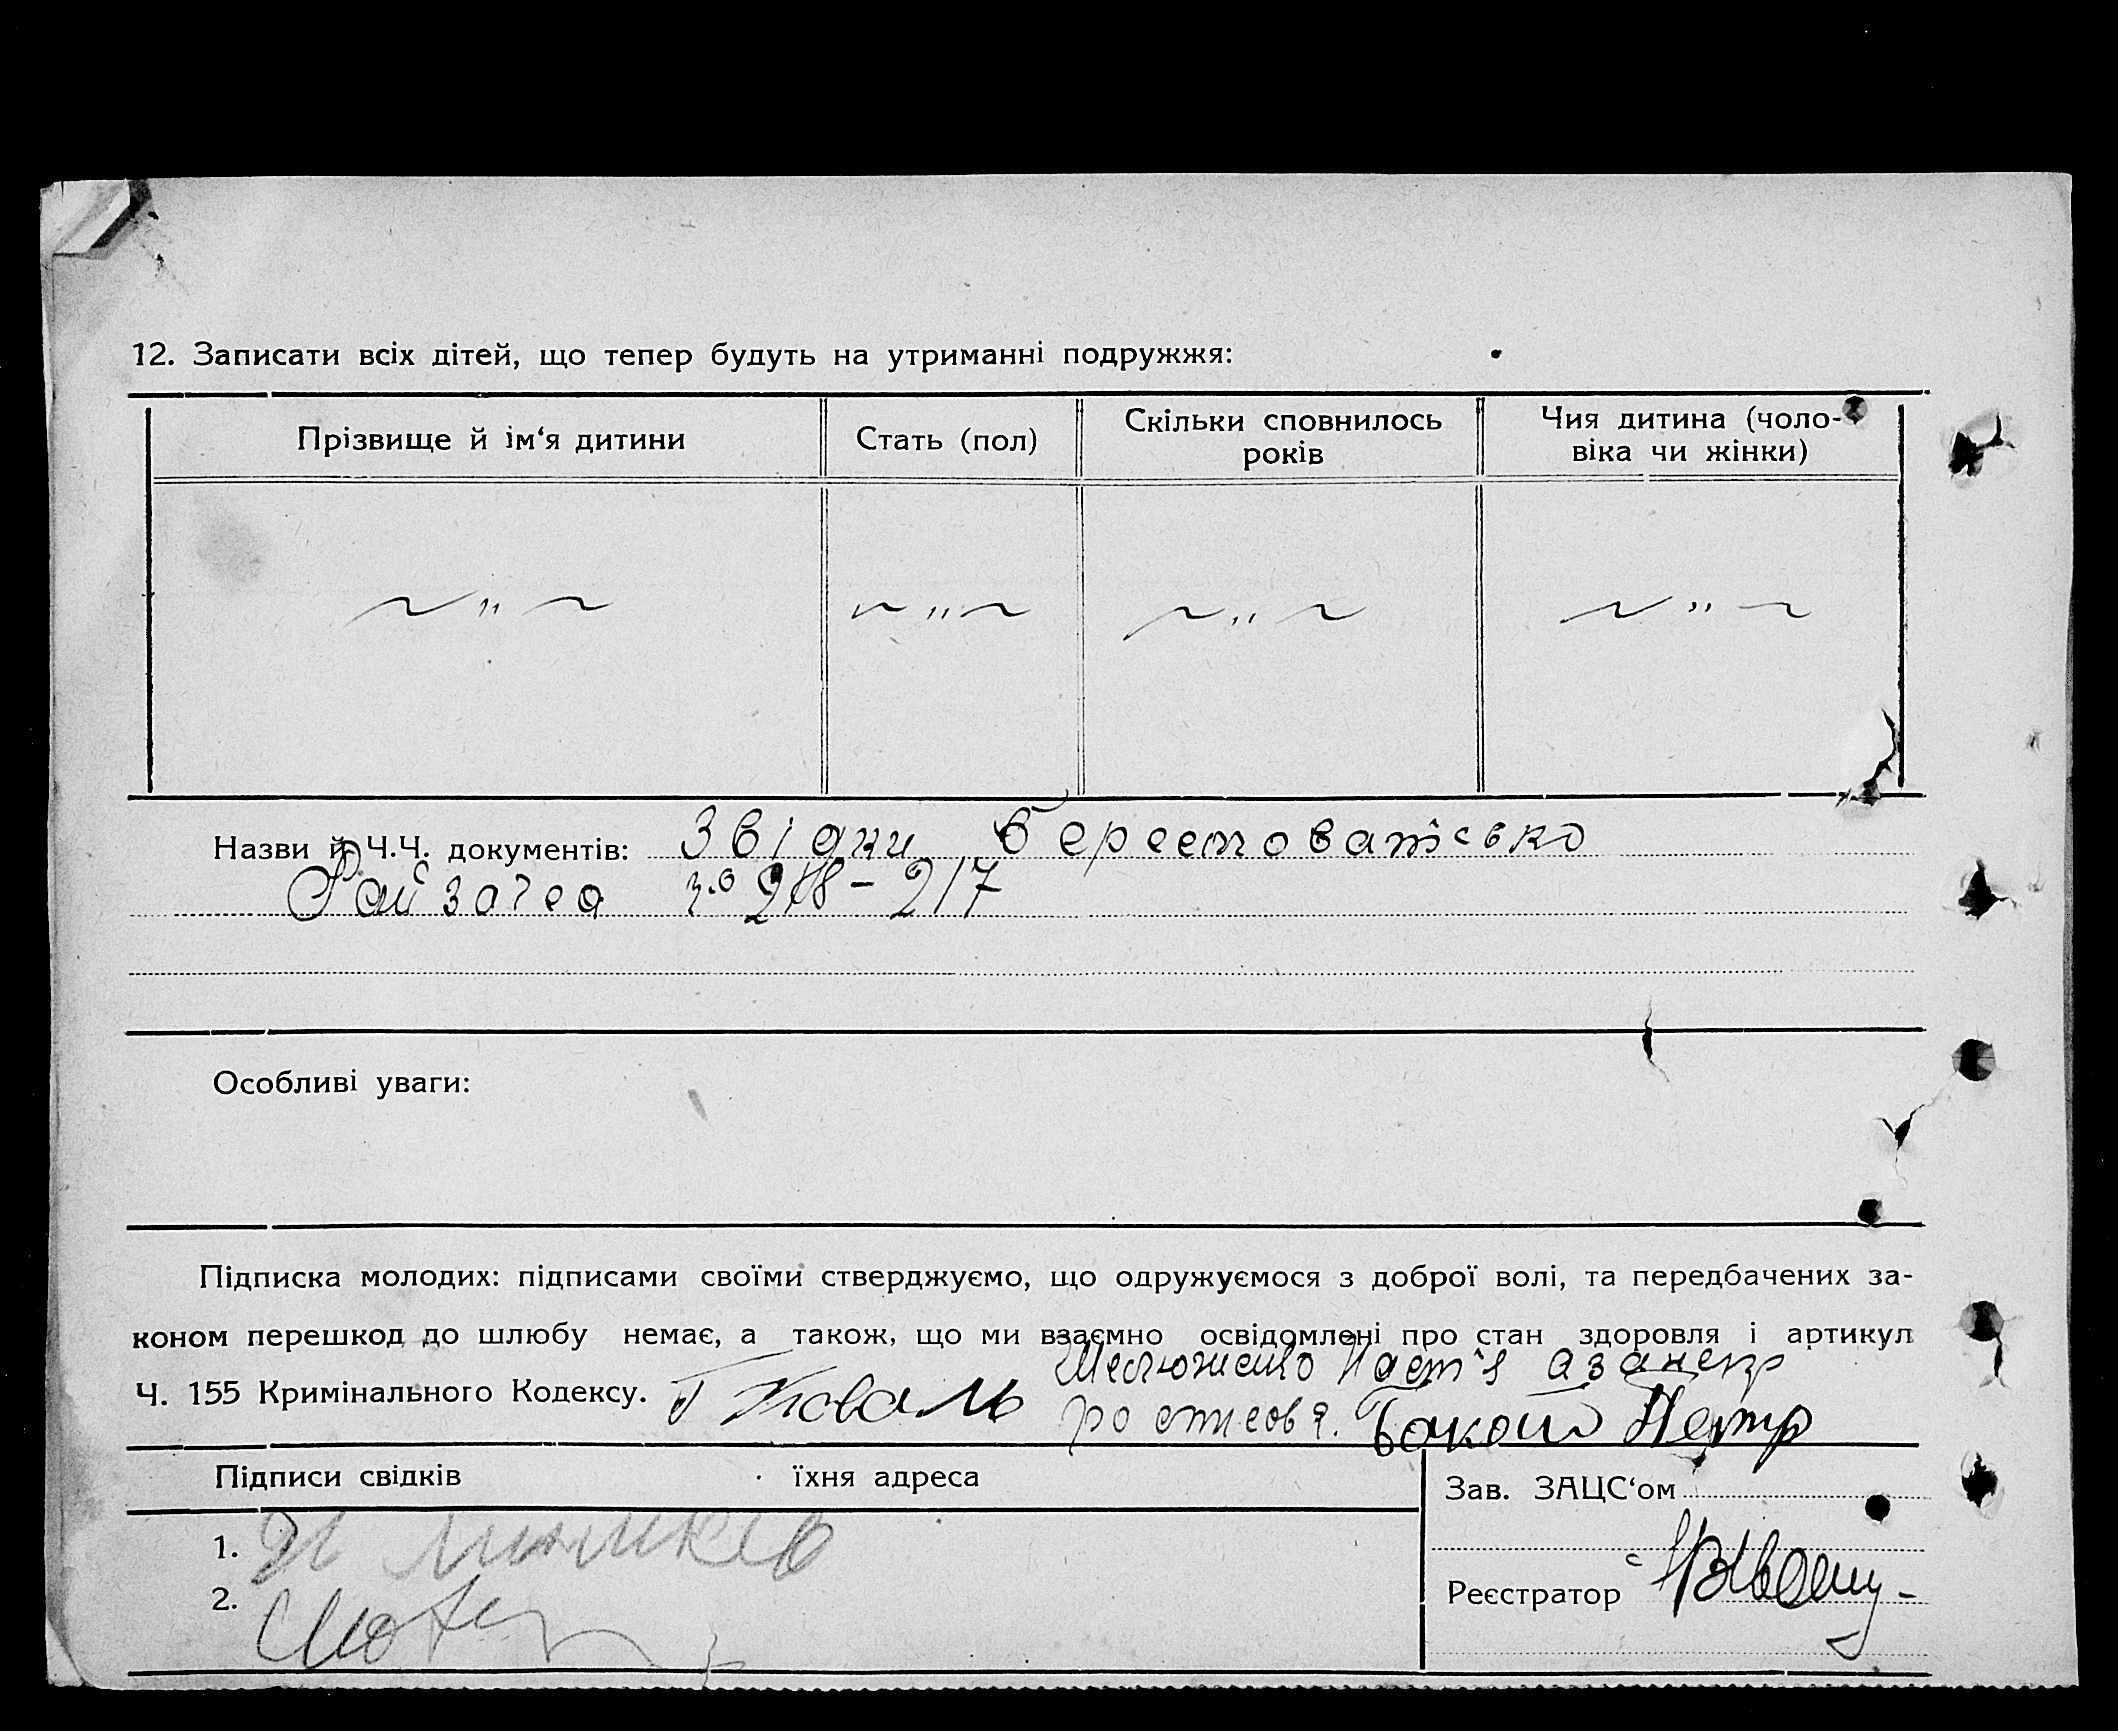 12. Записати всіх дітей, що тепер будуть на утриманні подружжя:
Прізвище й ім‘я дитини
Стать (пол)
Скільки сповнилось
років
Чия дитина (чоло-
віка чи жінки)
Назви й Ч.Ч. документів: Звідки Берестоватсько
Рай загса 218 - 217
Особливі уваги:
Підписка молодих: підписами своїми стверджуємо, що одружуємося з доброї волі, та передбачених за-
коном перешкод до шлюбу немає, а також, що ми взаємно освідомлені про стан здоровля і артикул
Ч. 155 Кримінального Кодексу. Г Коваль
Петр
Підписи свідків їхня адреса
Зав. ЗАЦС‘ом
1.
2.
Реєстратор